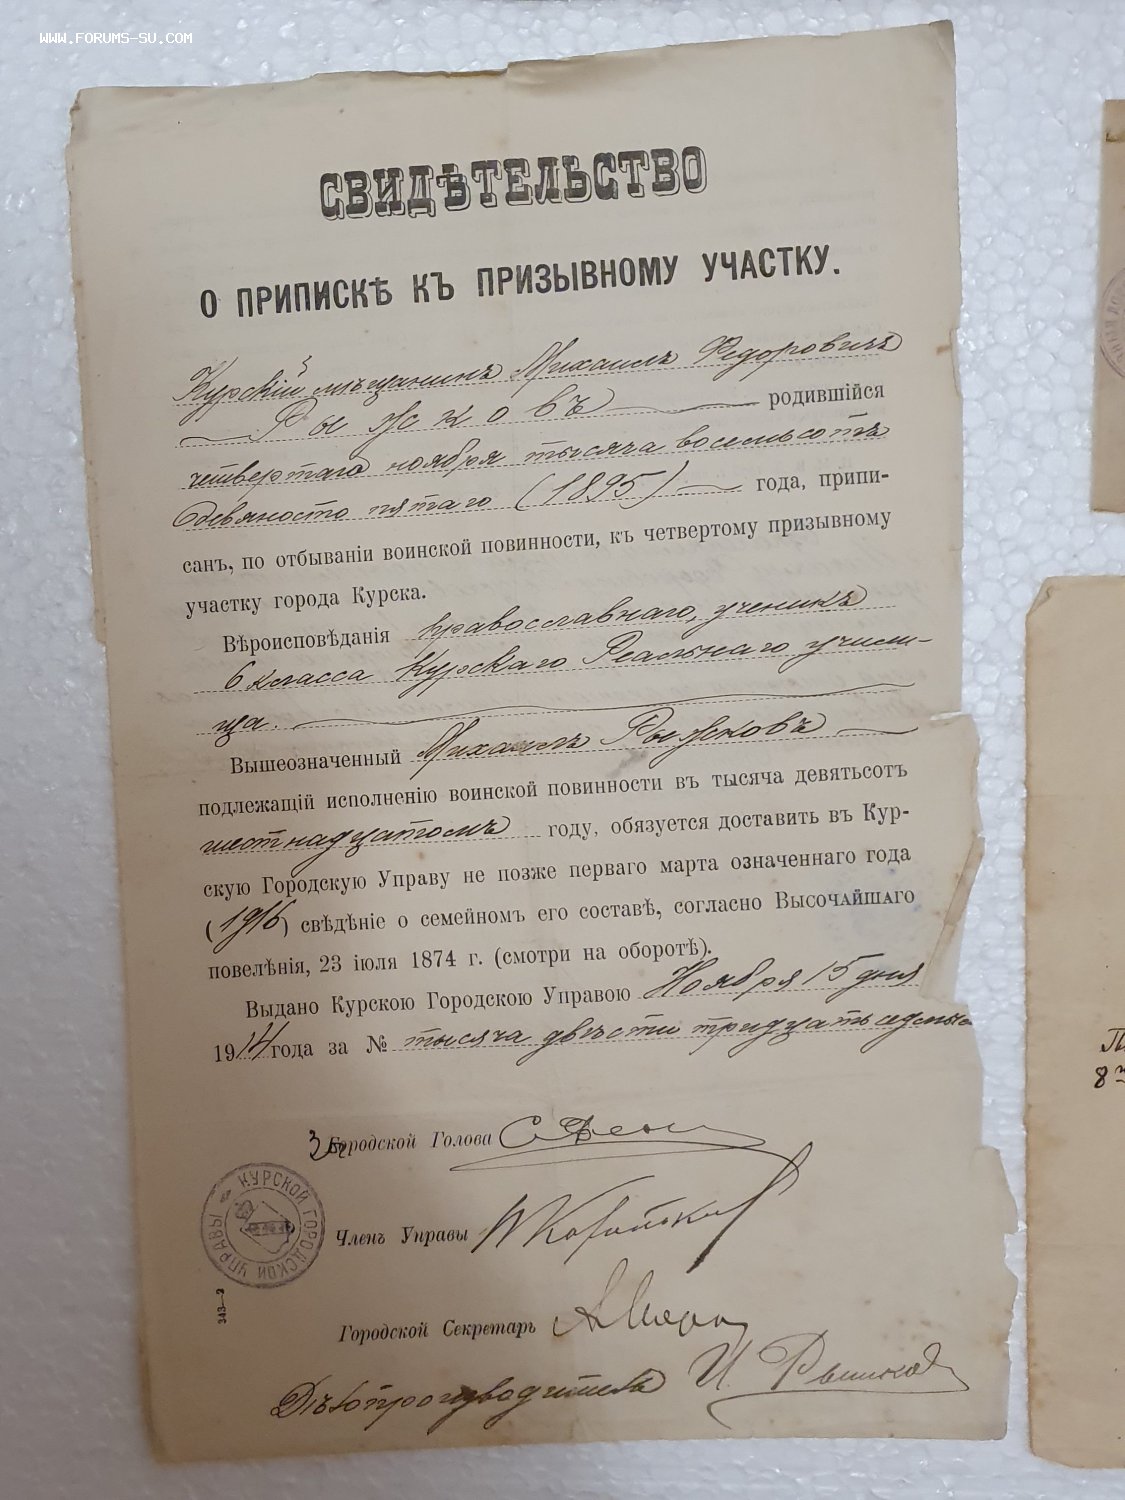 WWW.FORUMS-SU.COM
СВИДѢТЕЛЬСТВО
О ПРИПИСКѢ КЪ ПРИЗЫВНОМУ УЧАСТКУ.
Курскій мѣщанинъ Михаилъ Федоровичъ
Рыжковъ родившійся
четвертаго ноября тысяча восемьсотъ
девяносто пятаго (1895) года, припи-
санъ, по отбыванію воинской повинности, къ четвертому призывному
участку города Курска.
Вѣроисповѣданія православнаго, ученикъ
6 класса Курскаго Реальнаго учили-
ща.
Вышеозначенный Михаилъ Рыжковъ
подлежащій исполненію воинской повинности въ тысяча девятьсотъ
шестнадцатомъ году, обязуется доставить въ Кур-
скую Городскую Управу не позже перваго марта означеннаго года
(1916) свѣдѣніе о семейномъ его составѣ, согласно Высочайшаго
повелѣнія, 23 іюля 1874 г. (смотри на оборотѣ).
Выдано Курскою Городскою Управою Ноября 15 дня
1914 года за № тысяча двѣсти тридцать седмым
Городской Голова
КУРСКОЙ ГОРОДСКОЙ УПРАВЫ
Членъ Управы
343—2
Городской Секретарь
Дѣлопроизводитель И.
8